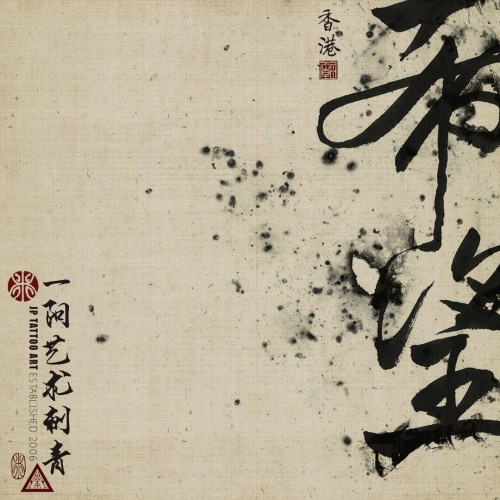 香港
希望
一阿艺术刺青
JP TATTOO ART ESTABLISHED 2006